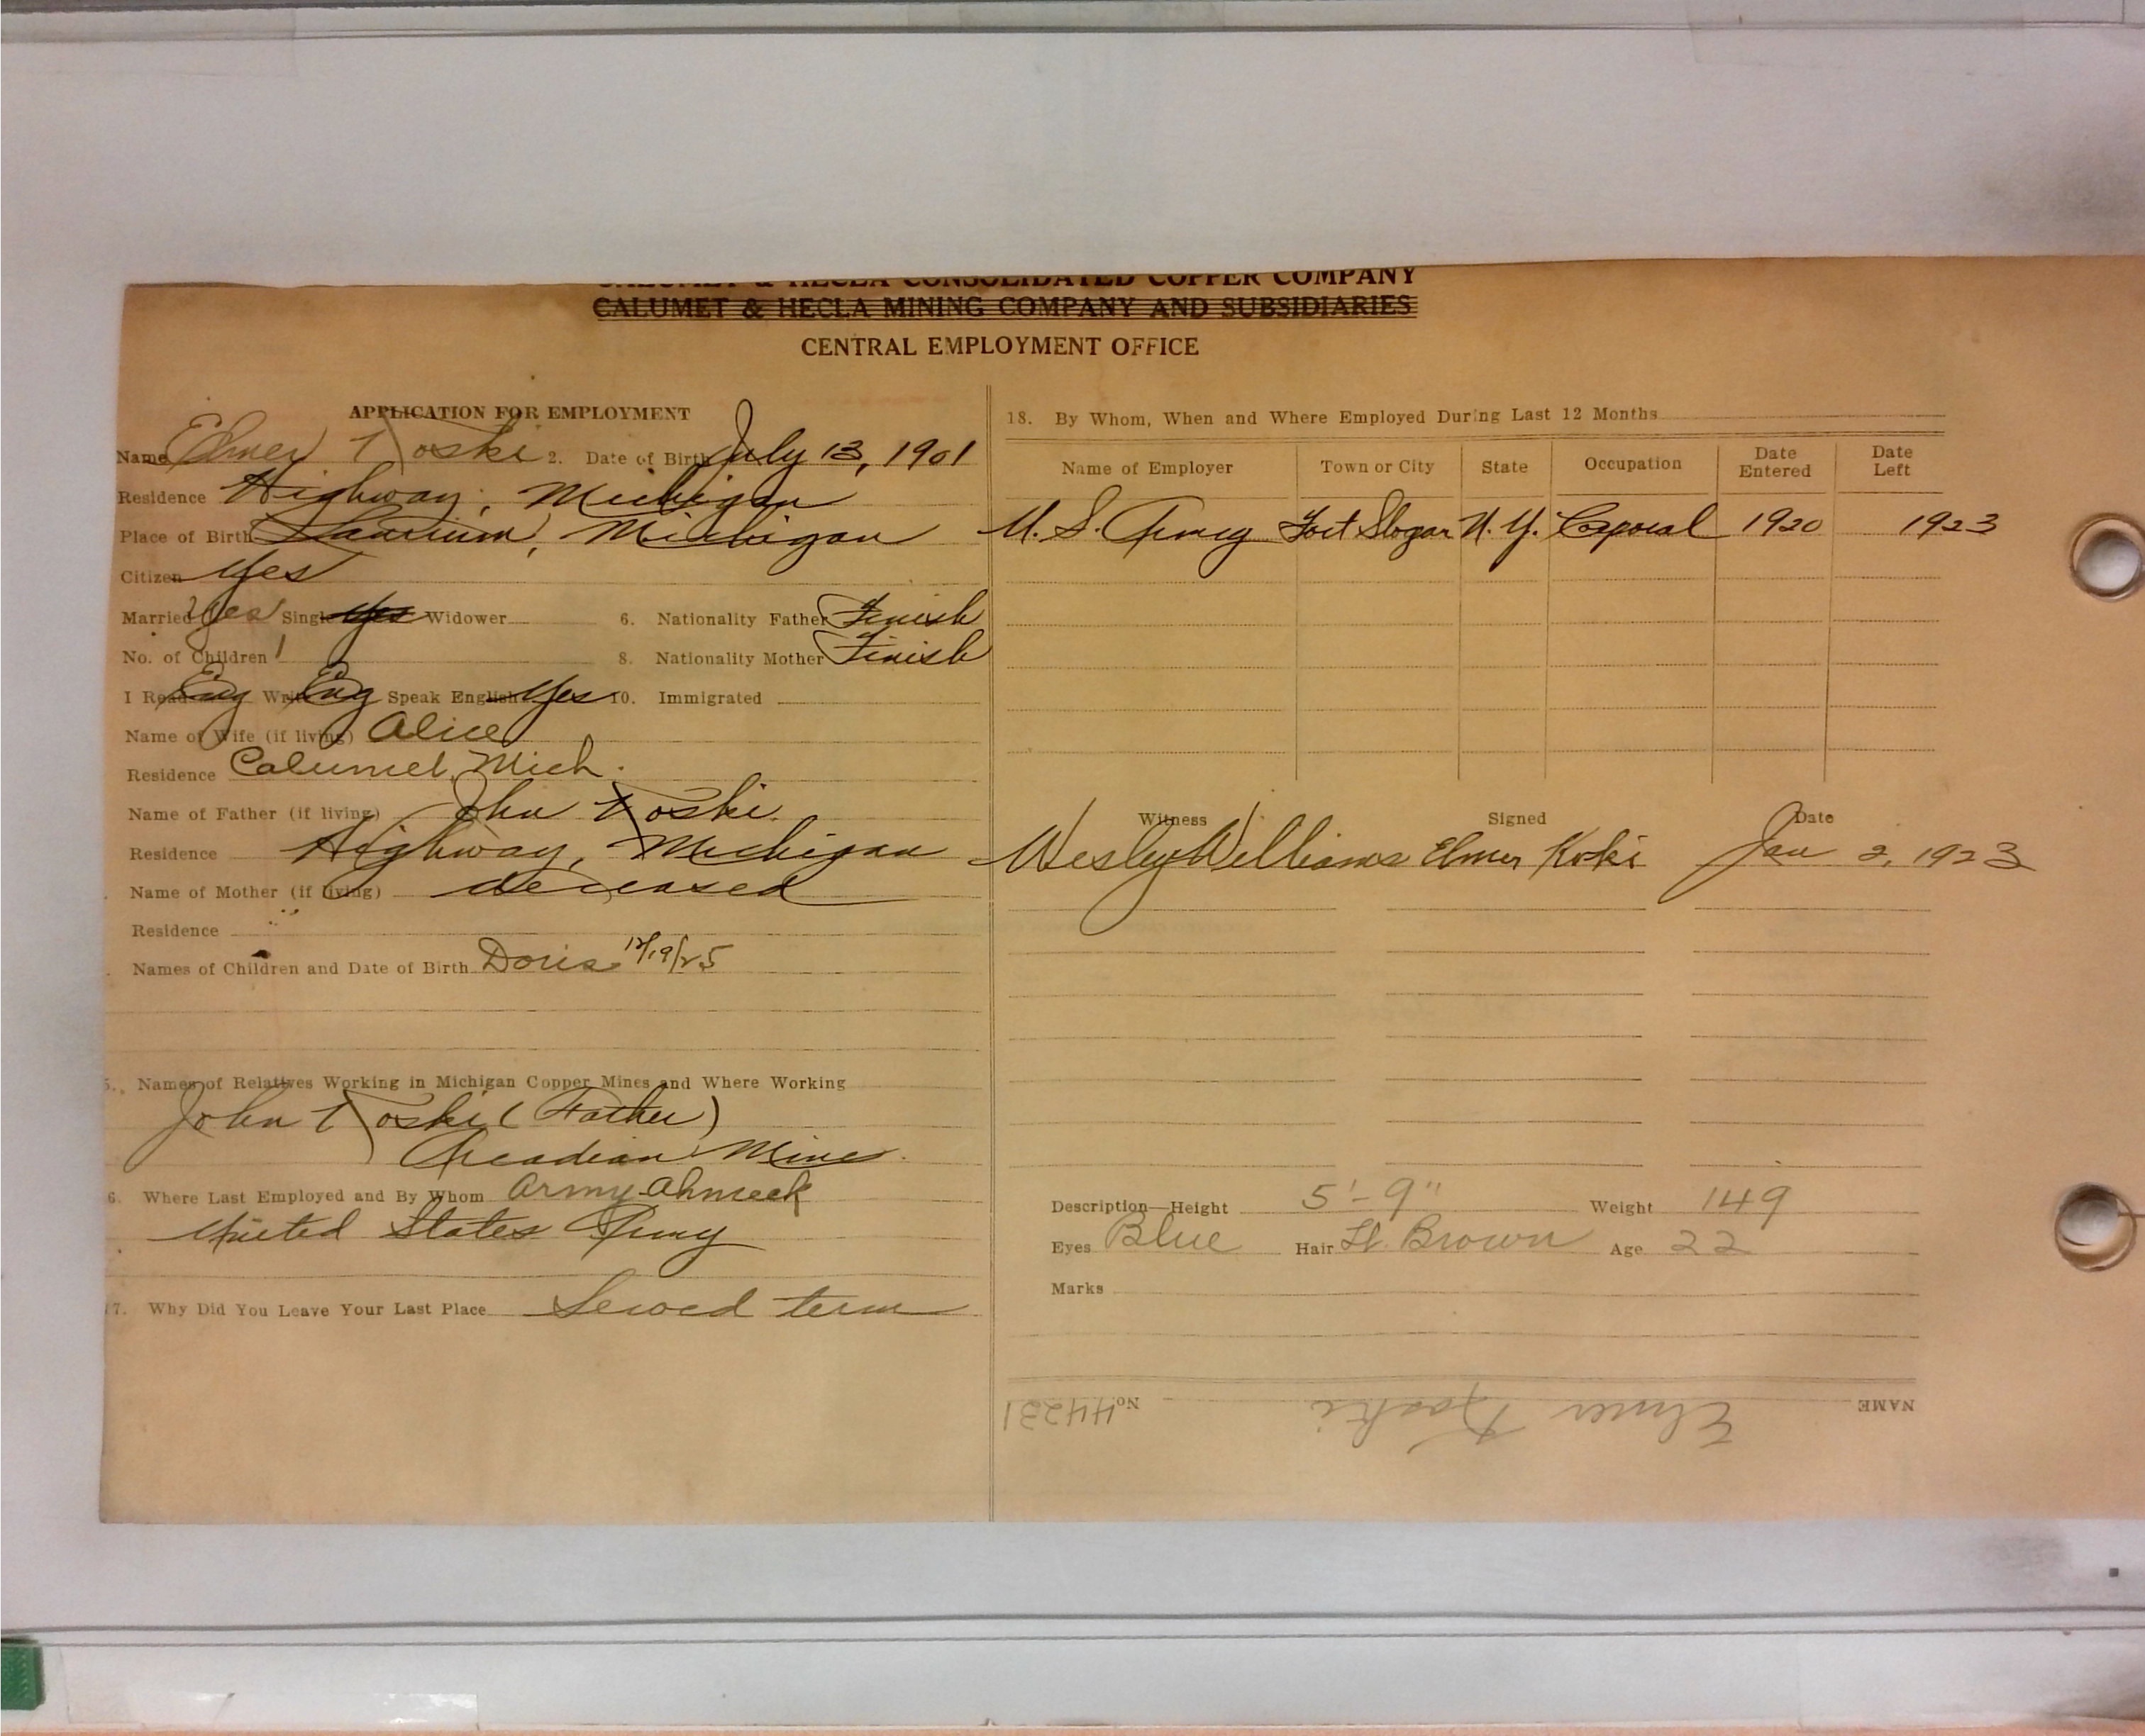 CALUMET & HECLA CONSOLIDATED COPPER COMPANY
CALUMET & HECLA MINING COMPANY AND SUBSIDIARIES
CENTRAL EMPLOYMENT OFFICE
APPLICATION FOR EMPLOYMENT
Name Elmer Koski 2. Date of Birth July 13, 1901
Residence Highway, Michigan
Place of Birth Laurium, Michigan
Citizen Yes
Married Yes Single Yes Widower 6. Nationality Father Finish
No. of Children 1 8. Nationality Mother Finish
I Read Eng Write Eng Speak English Yes 10. Immigrated
Name of Wife (if living) Alice
Residence Calumet, Mich.
Name of Father (if living) John Koski.
Residence Highway, Michigan
Name of Mother (if living) deceased
Residence
Names of Children and Date of Birth Doris 12/19/25
5. Names of Relatives Working in Michigan Copper Mines and Where Working
John Koski (Father)
Arcadian Mine.
6. Where Last Employed and By Whom Army-Ahmeek
United States Army
17. Why Did You Leave Your Last Place Served term
18. By Whom, When and Where Employed During Last 12 Months
Name of Employer Town or City State Occupation Date Entered Date Left
U. S. Army Fort Slogan N. Y. Coporal 1920 1923
Witness Signed Date
Wesley Williams Elmer Koski Jan 2, 1923
Description—Height 5'-9" Weight 149
Eyes Blue Hair Lt. Brown Age 22
Marks
NAME Elmer Koski No. 44231